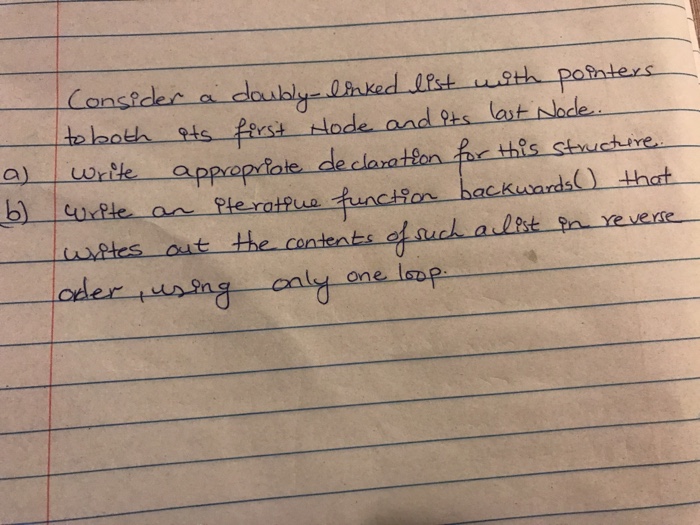 Consider a doubly-linked list with pointers
to both its first Node and its last Node.
a) write appropriate declaration for this structure.
b) write an iterative function backwards() that
writes out the contents of such a list in reverse
order, using only one loop.